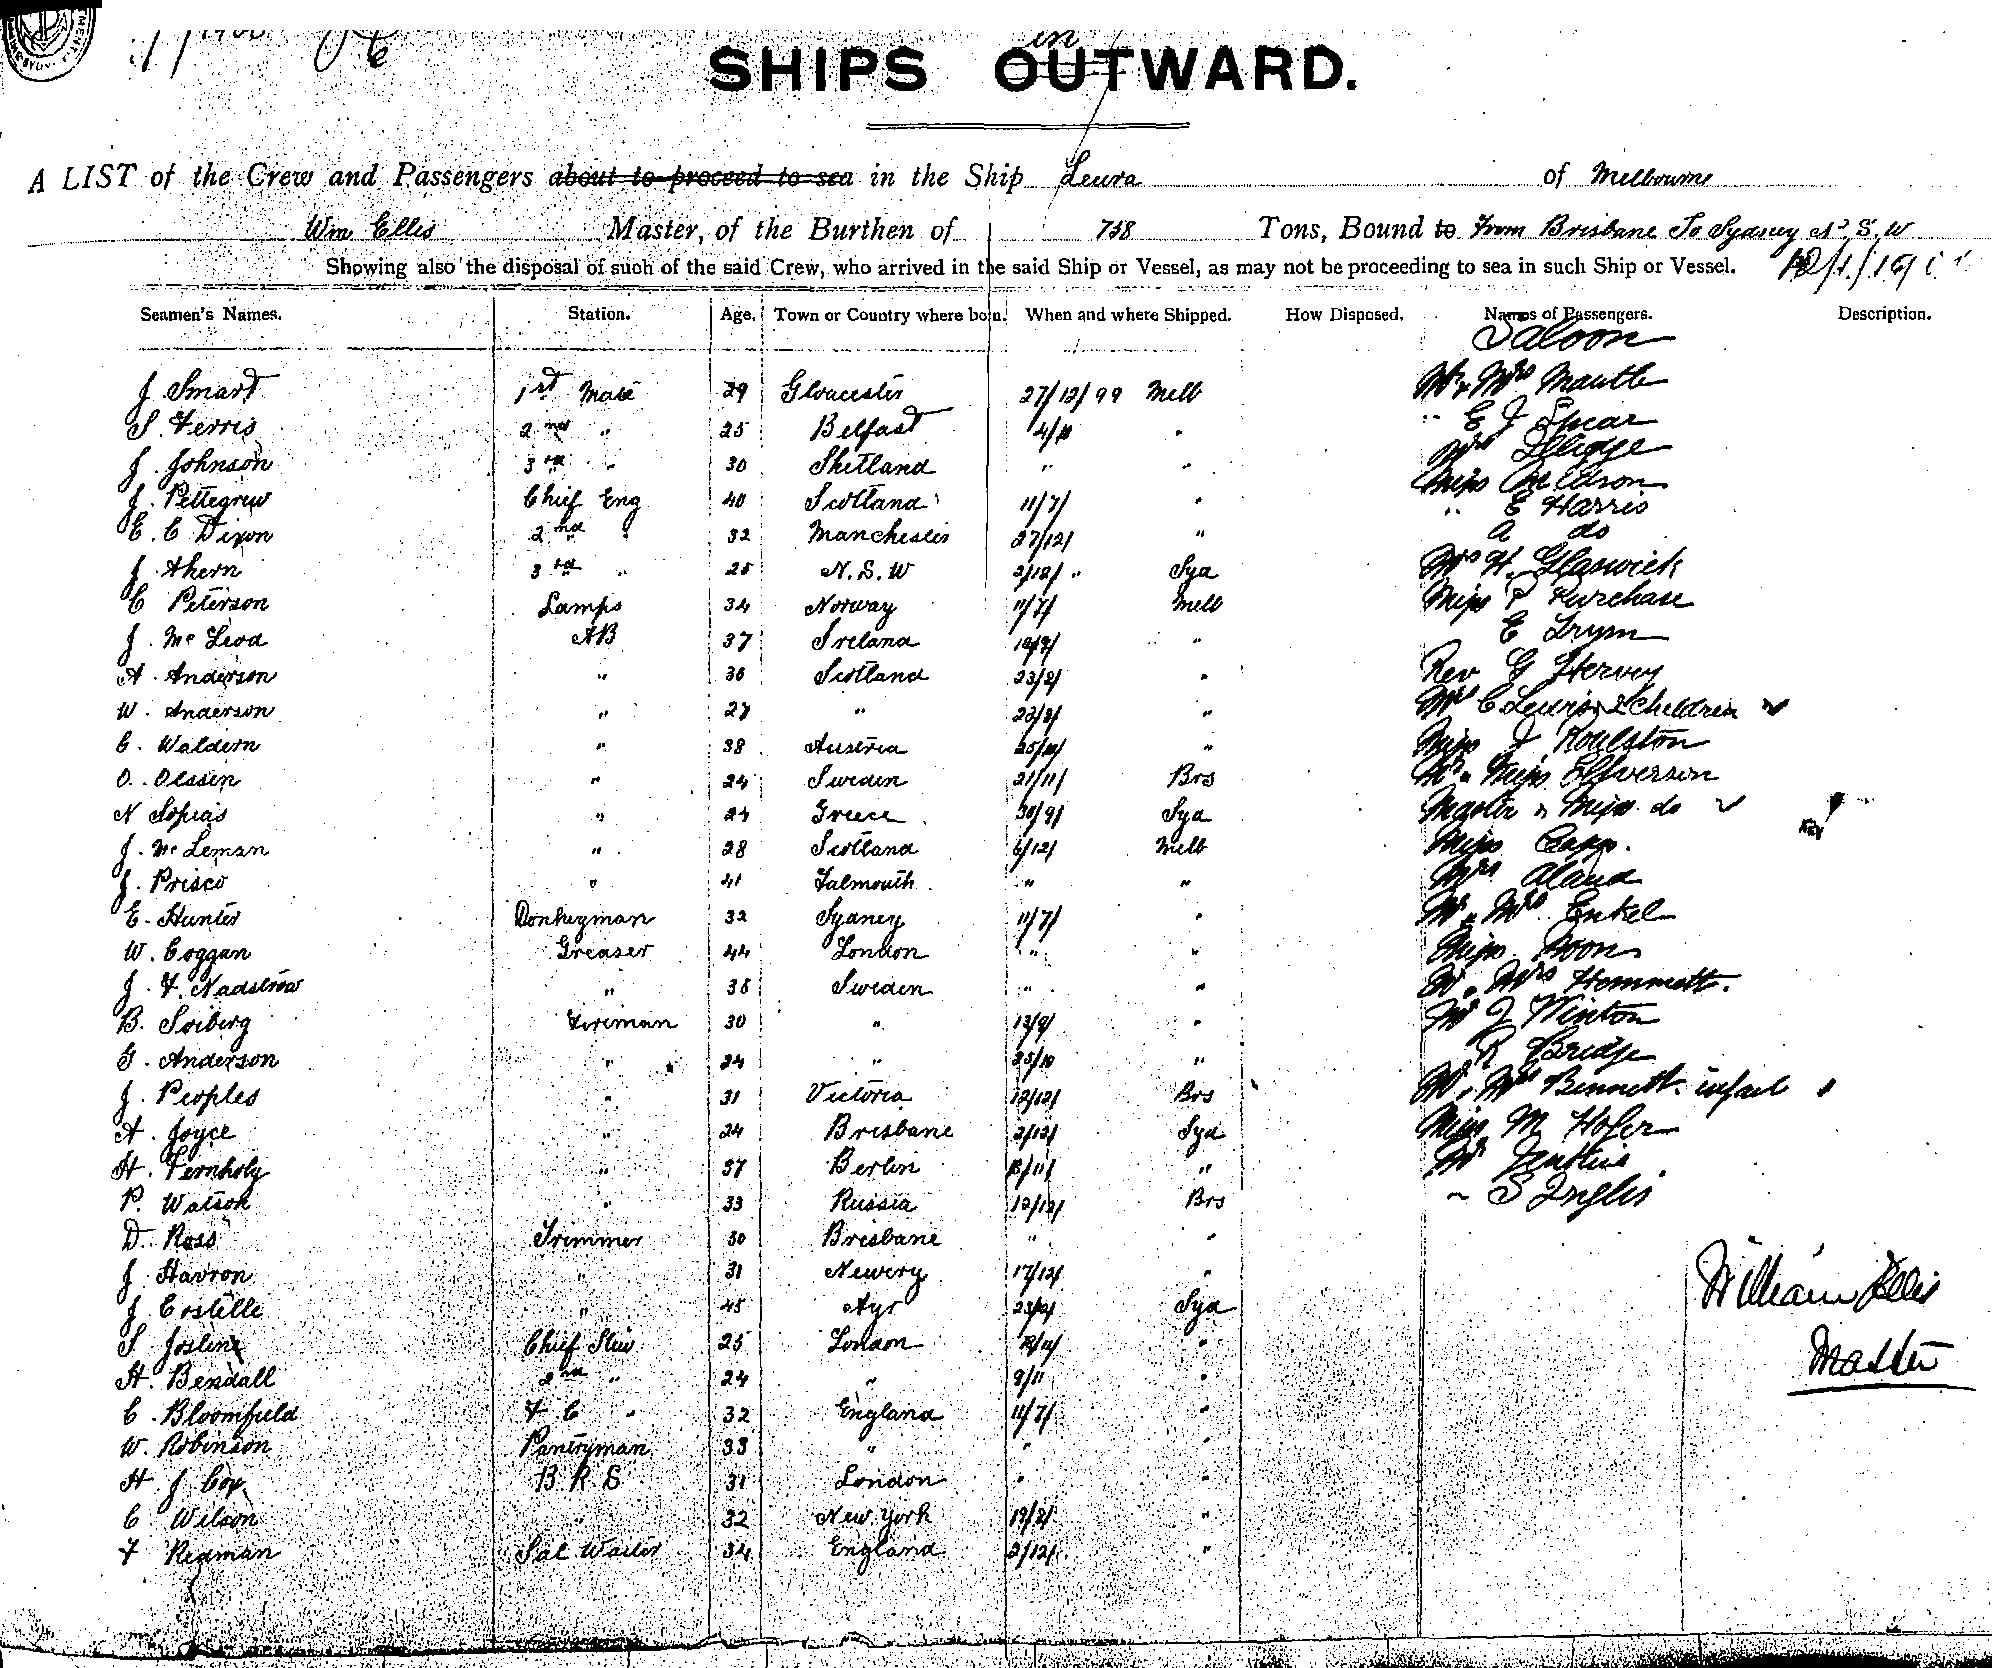 SHIPS OUTWARD.
in
A LIST of the Crew and Passengers about to proceed to sea in the Ship Leura of Melbourne
Wm Ellis Master, of the Burthen of 758 Tons, Bound to From Brisbane To Sydney N.S.W
Showing also the disposal of such of the said Crew, who arrived in the said Ship or Vessel, as may not be proceeding to sea in such Ship or Vessel.
Seamen's Names. Station. Age. Town or Country where born. When and where Shipped. How Disposed. Names of Passengers. Description.
Saloon
J Smart 1st Mate 29 Gloucester 27/12/99 Melb Mr & Mrs Mantle
S. Ferris 2nd " 25 Belfast 4/10 " " E J Spear
J. Johnson 3rd " 30 Shetland " " Mrs
J. Pettegrew Chief Eng 40 Scotland 11/7/ " Miss
E. C Dixon 2nd " 32 Manchester 27/12/ " " E Harris
A do
J. Ahern 3rd " 25 N.S.W 2/12/ " Syd Mrs H.
C Peterson Lamps 34 Norway 11/7/ Melb Miss P Purchase
J. Mc Leod AB 37 Ireland " E
A. Anderson " 36 Scotland 23/8/ " Rev G Hervey
W. Anderson " 27 " 23/8/ " Mrs C Lewis & 2 Children
C. Waldern " 38 Austria 25/10/ " Miss J Roulston
O. Olssen " 24 Sweden 21/11/ Brs Mr & Miss
N Sopias " 24 Greece 30/9/ Syd Master & Miss do
J. Mc Leman " 28 Scotland 6/12/ Melb Miss
J. Prisco " 41 Falmouth " " Mrs Aland
E. Hunter Donkeyman 32 Sydney 11/7/ " Mr & Mrs Enkel
W. Coggan Greaser 44 London " " Miss Noon
J. F. Nadstrow " 38 Sweden " " Mr & Mrs Hemmett.
B. Soiberg Fireman 30 " 13/9/ " Mr J Winton
G. Anderson " 24 " 25/10 " R Bridge
J. Peoples " 31 Victoria 12/12/ Brs Mr & Mrs Bennett infant
A. Joyce " 24 Brisbane 2/12/ Syd Miss M Hofer
H. Fernholy " 37 Berlin " Mr Jenkins
P. Watson " 33 Russia 12/12/ Brs " S Inglis
D. Ross Trimmer 30 Brisbane " "
J. Havron " 31 Newery 17/12/ "
J. Costelle " 45 Ayr Syd
William Ellis
S Josline Chief Stew 25 London "
Master
H. Bendall 2nd " 24 " 9/11 "
C. Bloomfield F C " 32 England 11/7/ "
W. Robinson Pantryman 33 " " "
H. J. Cox B.R.S 31 London " "
C. Wilson " 32 New York 19/8/ "
F Redman Sal Waiter 34 England 2/12/ "